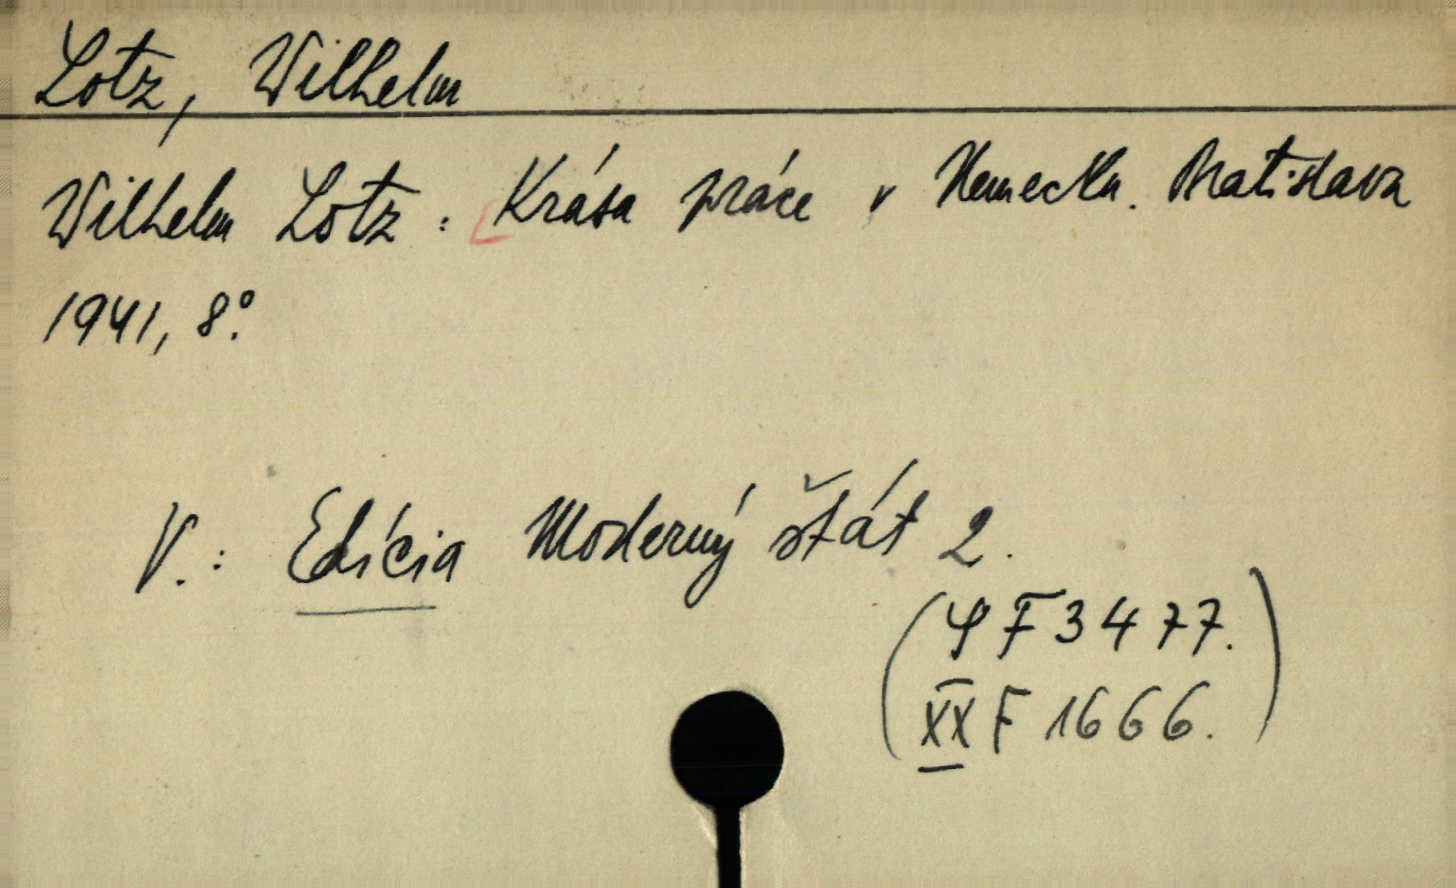 Lotz, Wilhelm
Wilhelm Lotz : Krása práce v Nemecku. Bratislava
1941, 8°.
V.: Edícia Moderný štát 2.
(F 3477.
XX F 1666.)